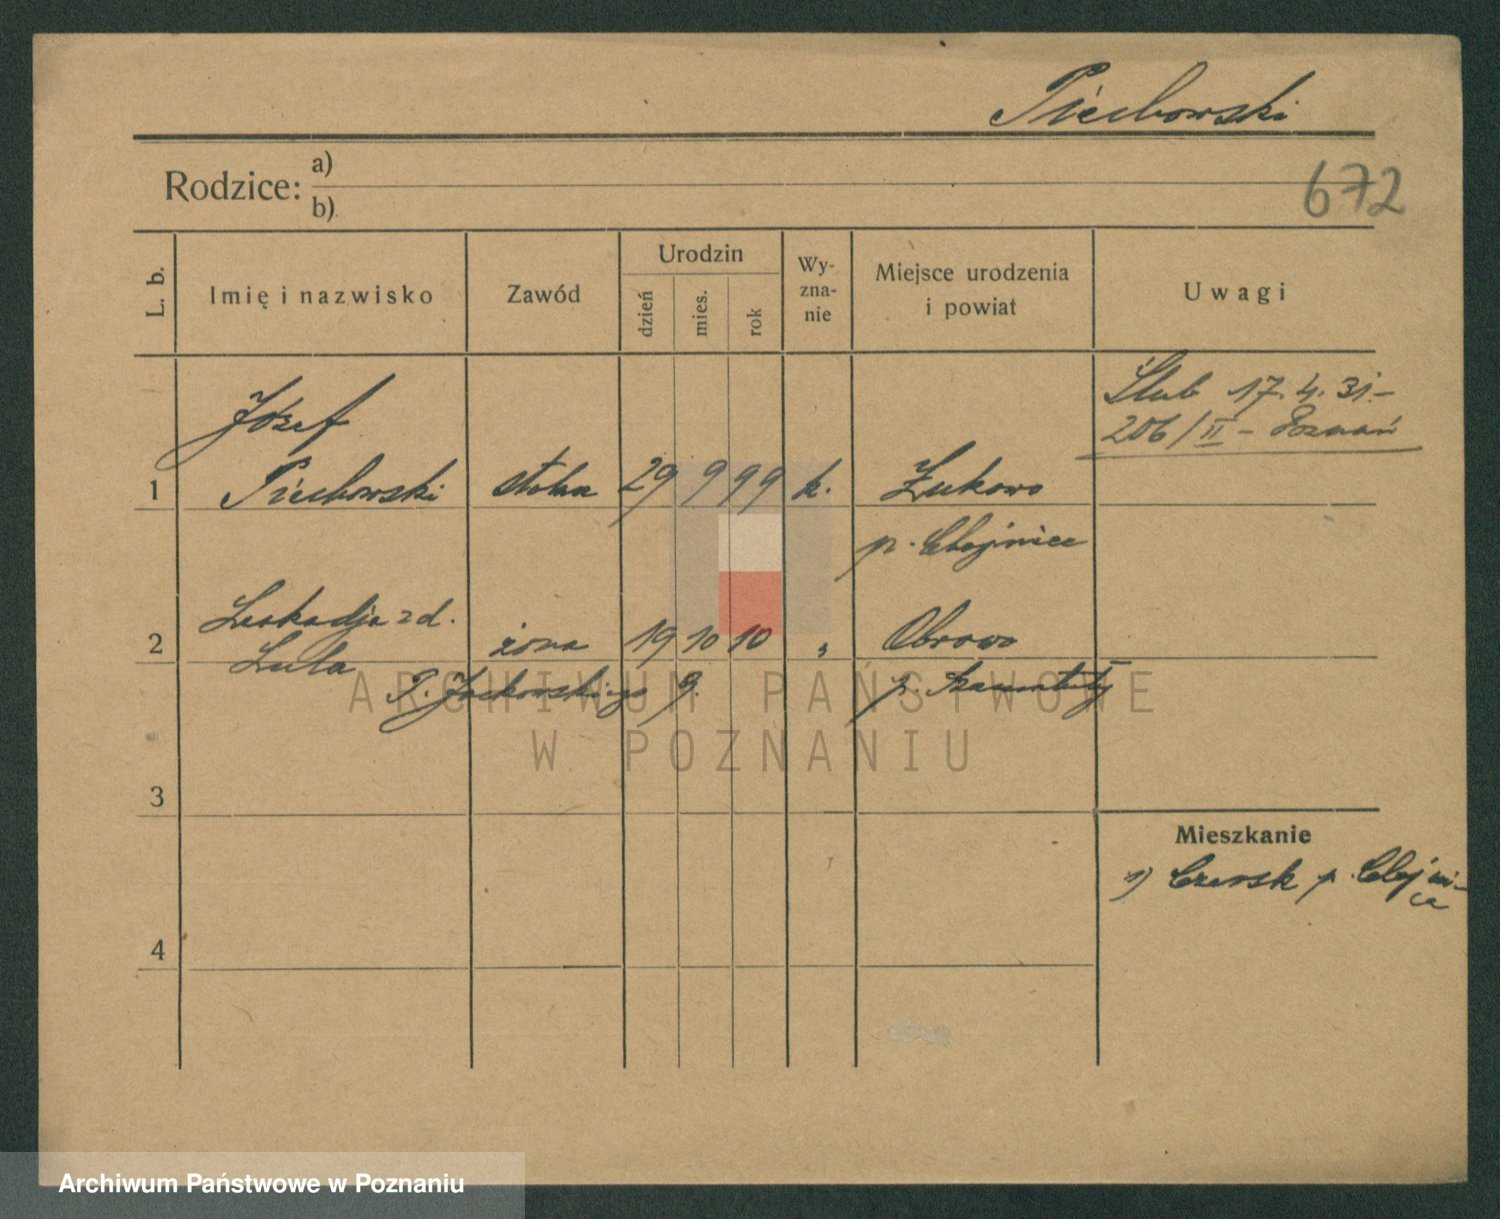 Piechowski
Rodzice: a)
b)
672
L. b.
Imię i nazwisko
Zawód
Urodzin
dzień
mies.
rok
Wy-
zna-
nie
Miejsce urodzenia
i powiat
Uwagi
Ślub 17. 4. 31.-
206/II - Poznań
Józef
1 Piechowski 29 9 99 k. Żukowo
p. Chojnice
Leokadja z d.
2 żona 19 10 10 " Obrowo
Lula
P. Jackowskiego 9.
p. Szamotuły
ARCHIWUM PAŃSTWOWE
W POZNANIU
3
Mieszkanie
1) Czersk p. Chojni-
ca
4
Archiwum Państwowe w Poznaniu